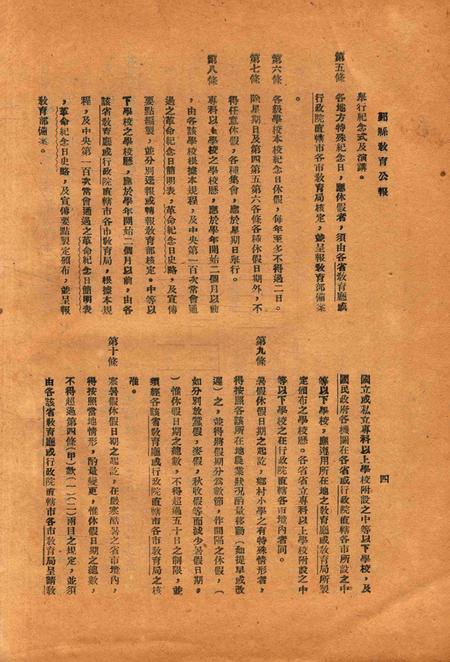 鄞縣教育公報
四
舉行紀念式及演講。
第五條　各地方特殊紀念日，應休假者，須由各省教育廳或
行政院直轄市各市教育局核定，並呈報教育部備案
。
第六條　各級學校本校紀念日休假，每年至多不得過二日。
第七條　除星期日及第四第五第六各條各種休假日期外，不
得任意休假，各種集會，應於星期日舉行。
第八條　專科以上學校之學校曆，應於學年開始二個月以前
，由各該學校根據本規程，及中央第一百次常會通
過之革命紀念日簡明表，革命紀念日史略，及宣傳
要點編製，並分別逕報或轉報教育部核定。中等以
下學校之學校曆，應於學年開始二個月以前，由各
該省教育廳或行政院直轄市各市教育局，根據本規
程，及中央第一百次常會通過之革命紀念日簡明表
，革命紀念日史略，及宣傳要點製定頒布，並呈報
教育部備案。
國立或私立專科以上學校附設之中等以下學校，及
國民政府各機關在各省或行政院直轄各市所設之中
等以下學校，應遵用所在地之教育廳或教育局所製
定頒布之學校曆。各省省立專科以上學校附設之中
等以下學校之在行政院直轄各市境內者同。
第九條　暑假休假日期之起訖，鄉村小學之有特殊情形者，
得按照各該所在地農業狀況酌量移動（如提早或改
遲）之，並得將假期分為數節，作間隔之休假，（
如分別放蠶假，麥假，秋收假等而減少暑假日期。
）惟休假日期之總數，不得超過五十日之制限，並
須經各該省教育廳或行政院直轄市各市教育局之核
准。
第十條　寒暑假休假日期之起訖，在嚴寒酷暑之省市境內，
得按照當地情形，酌量變更，惟休假日期之總數，
不得超過第四條（甲）款（一）（二）兩目之規定，並須
由各該省教育廳或行政院直轄市各市教育局呈請教